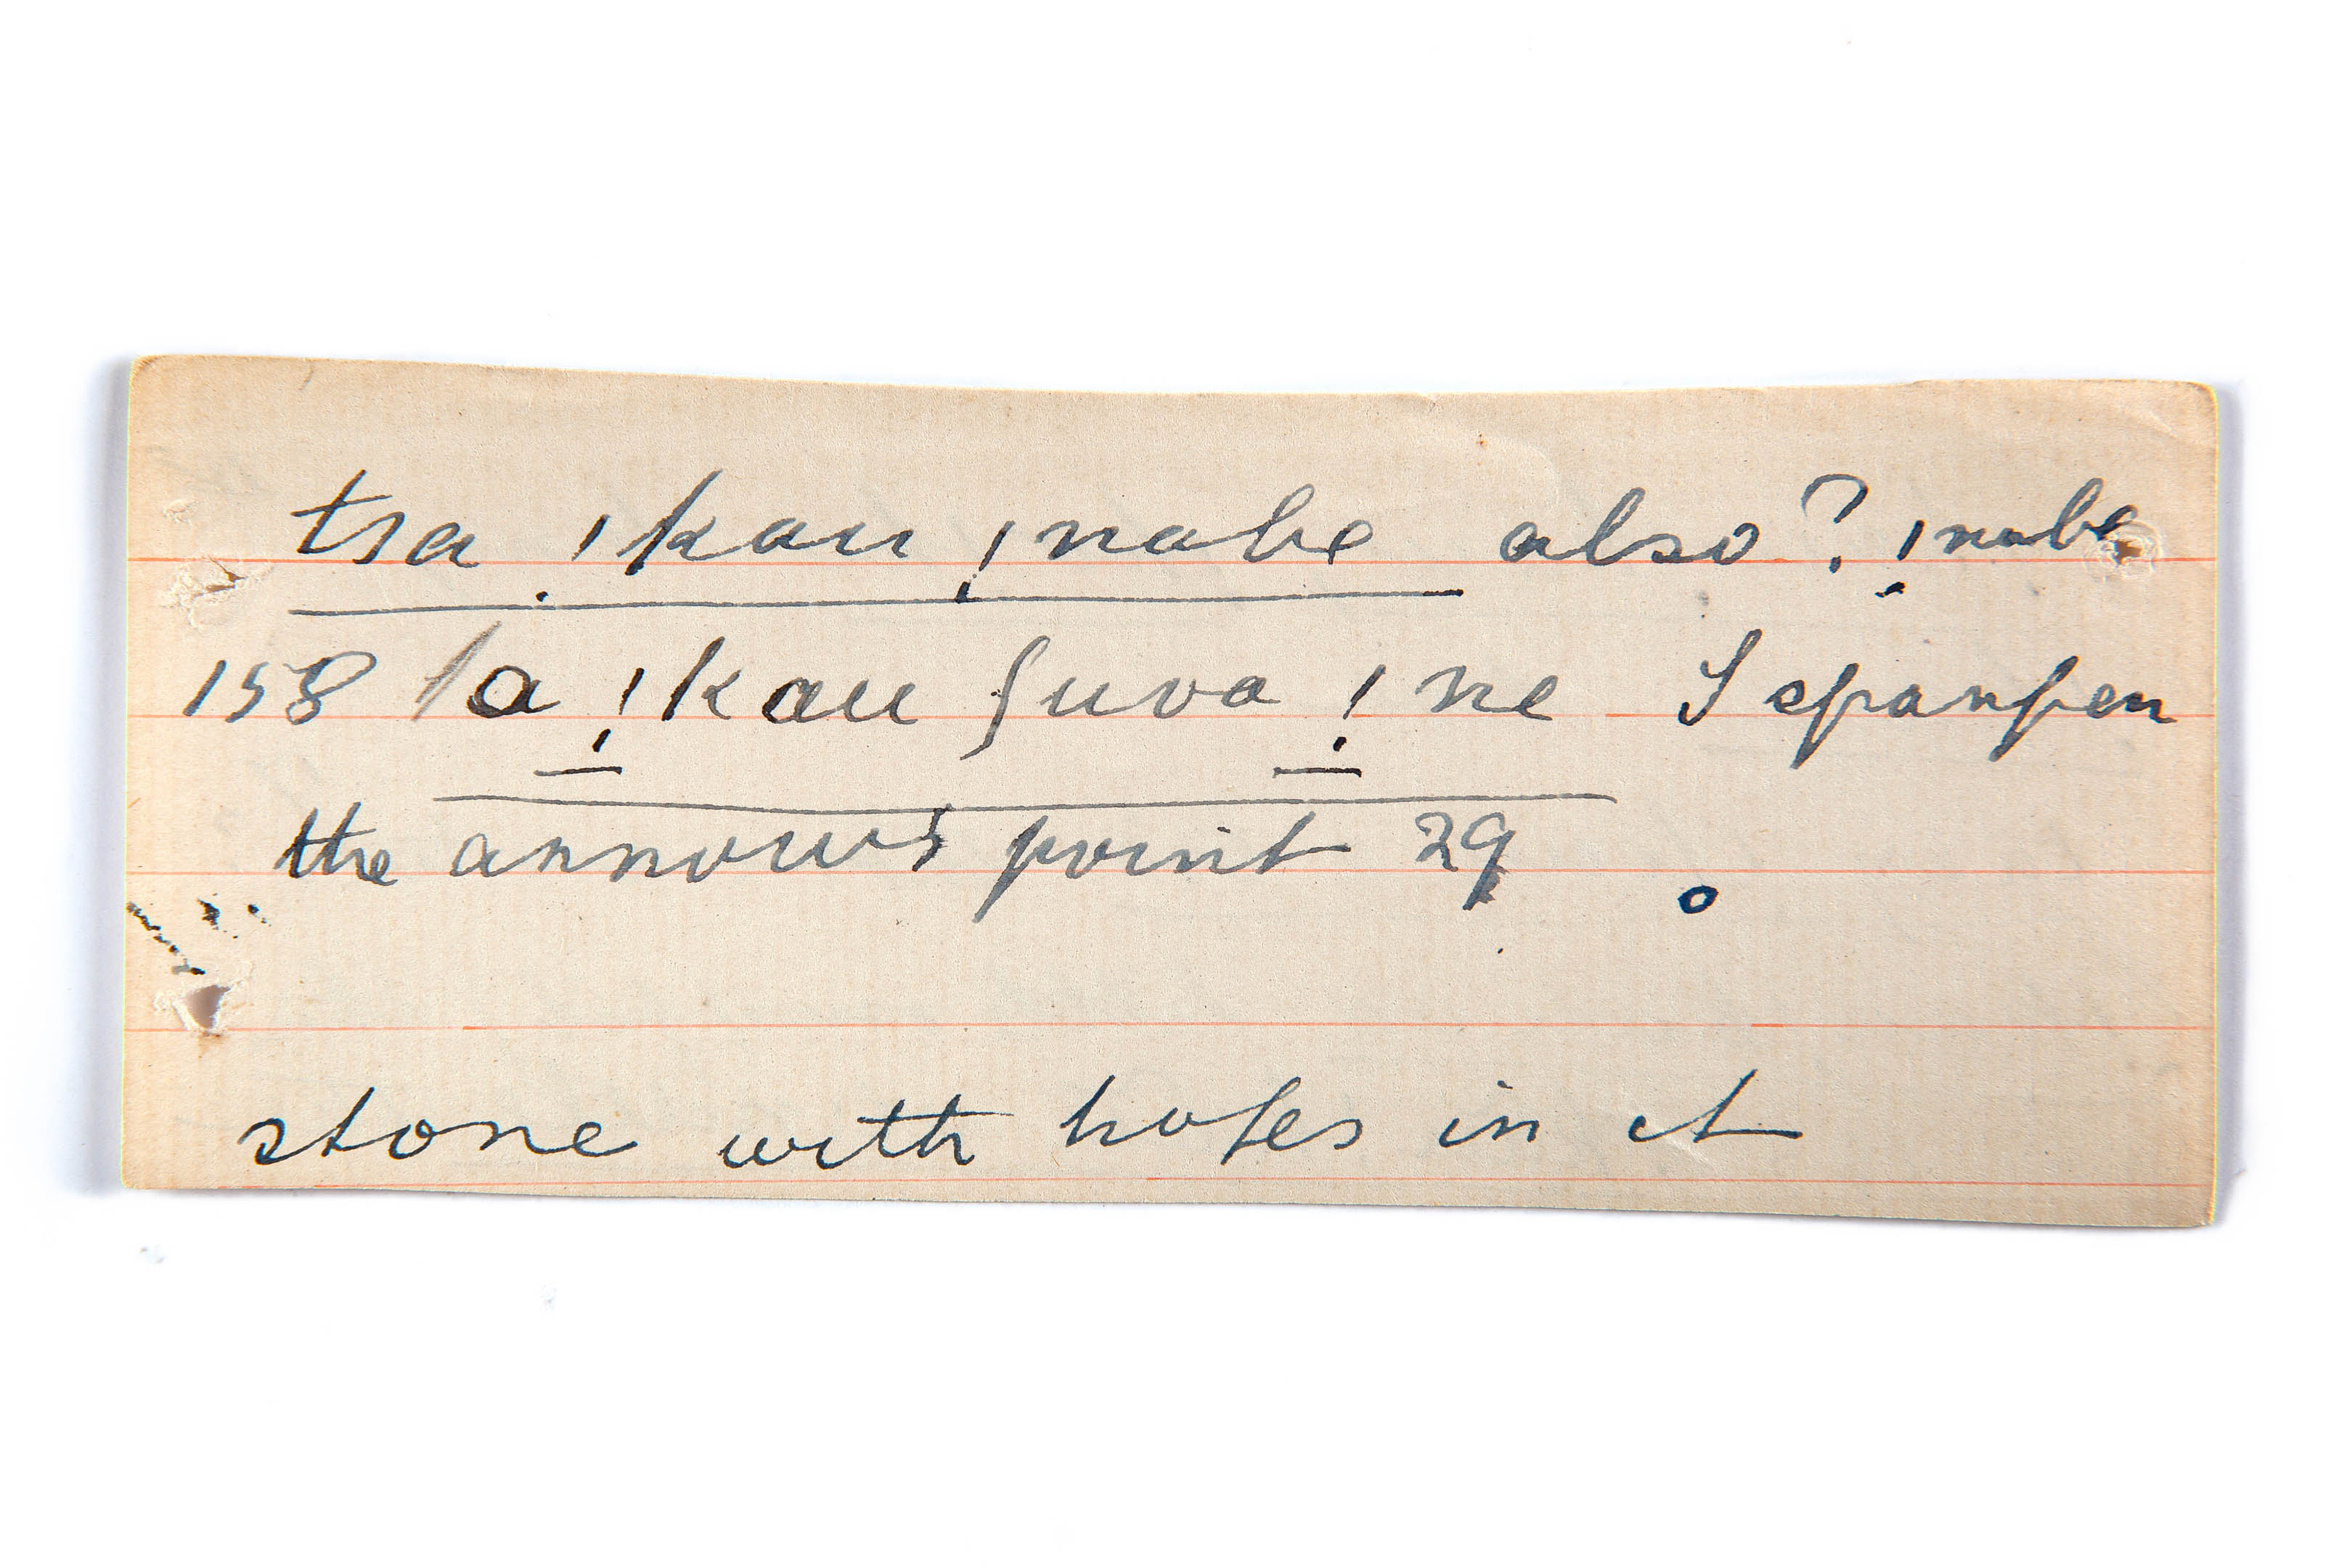 tsa !kau !nabe also? !nabe
158 /a !kau ʃuva !ne I sharpen
the arrows point 29
stone with holes in it